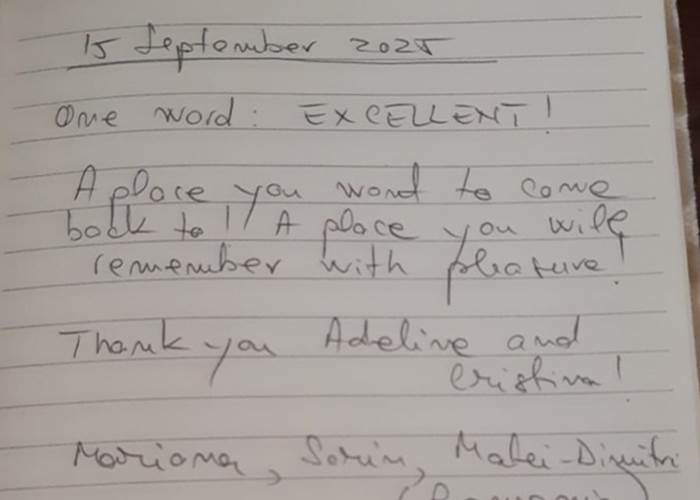 15 September 2025
One word: EXCELLENT!
A place you wond to come
back to!! A place you will
remember with pleasure!
Thank you Adeline and
Cristina!
Mariana, Sorin, Matei-Dimitri